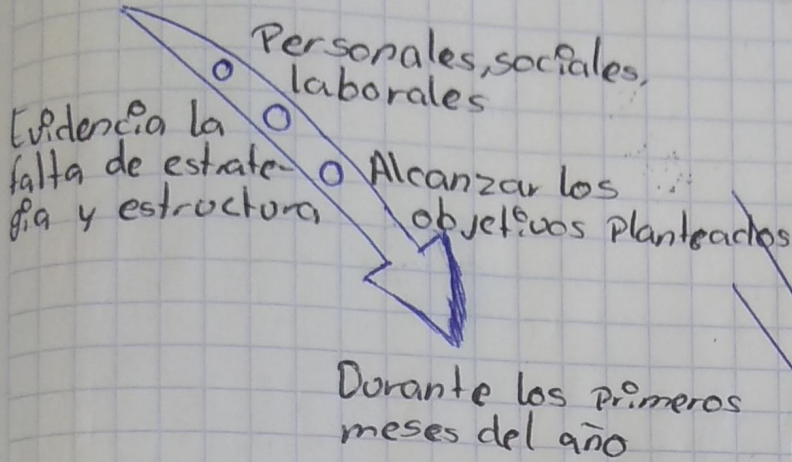 Personales, sociales,
laborales
Evidencia la
falta de estrate-
gia y estructura
Alcanzar los
objetivos planteados
Durante los primeros
meses del año